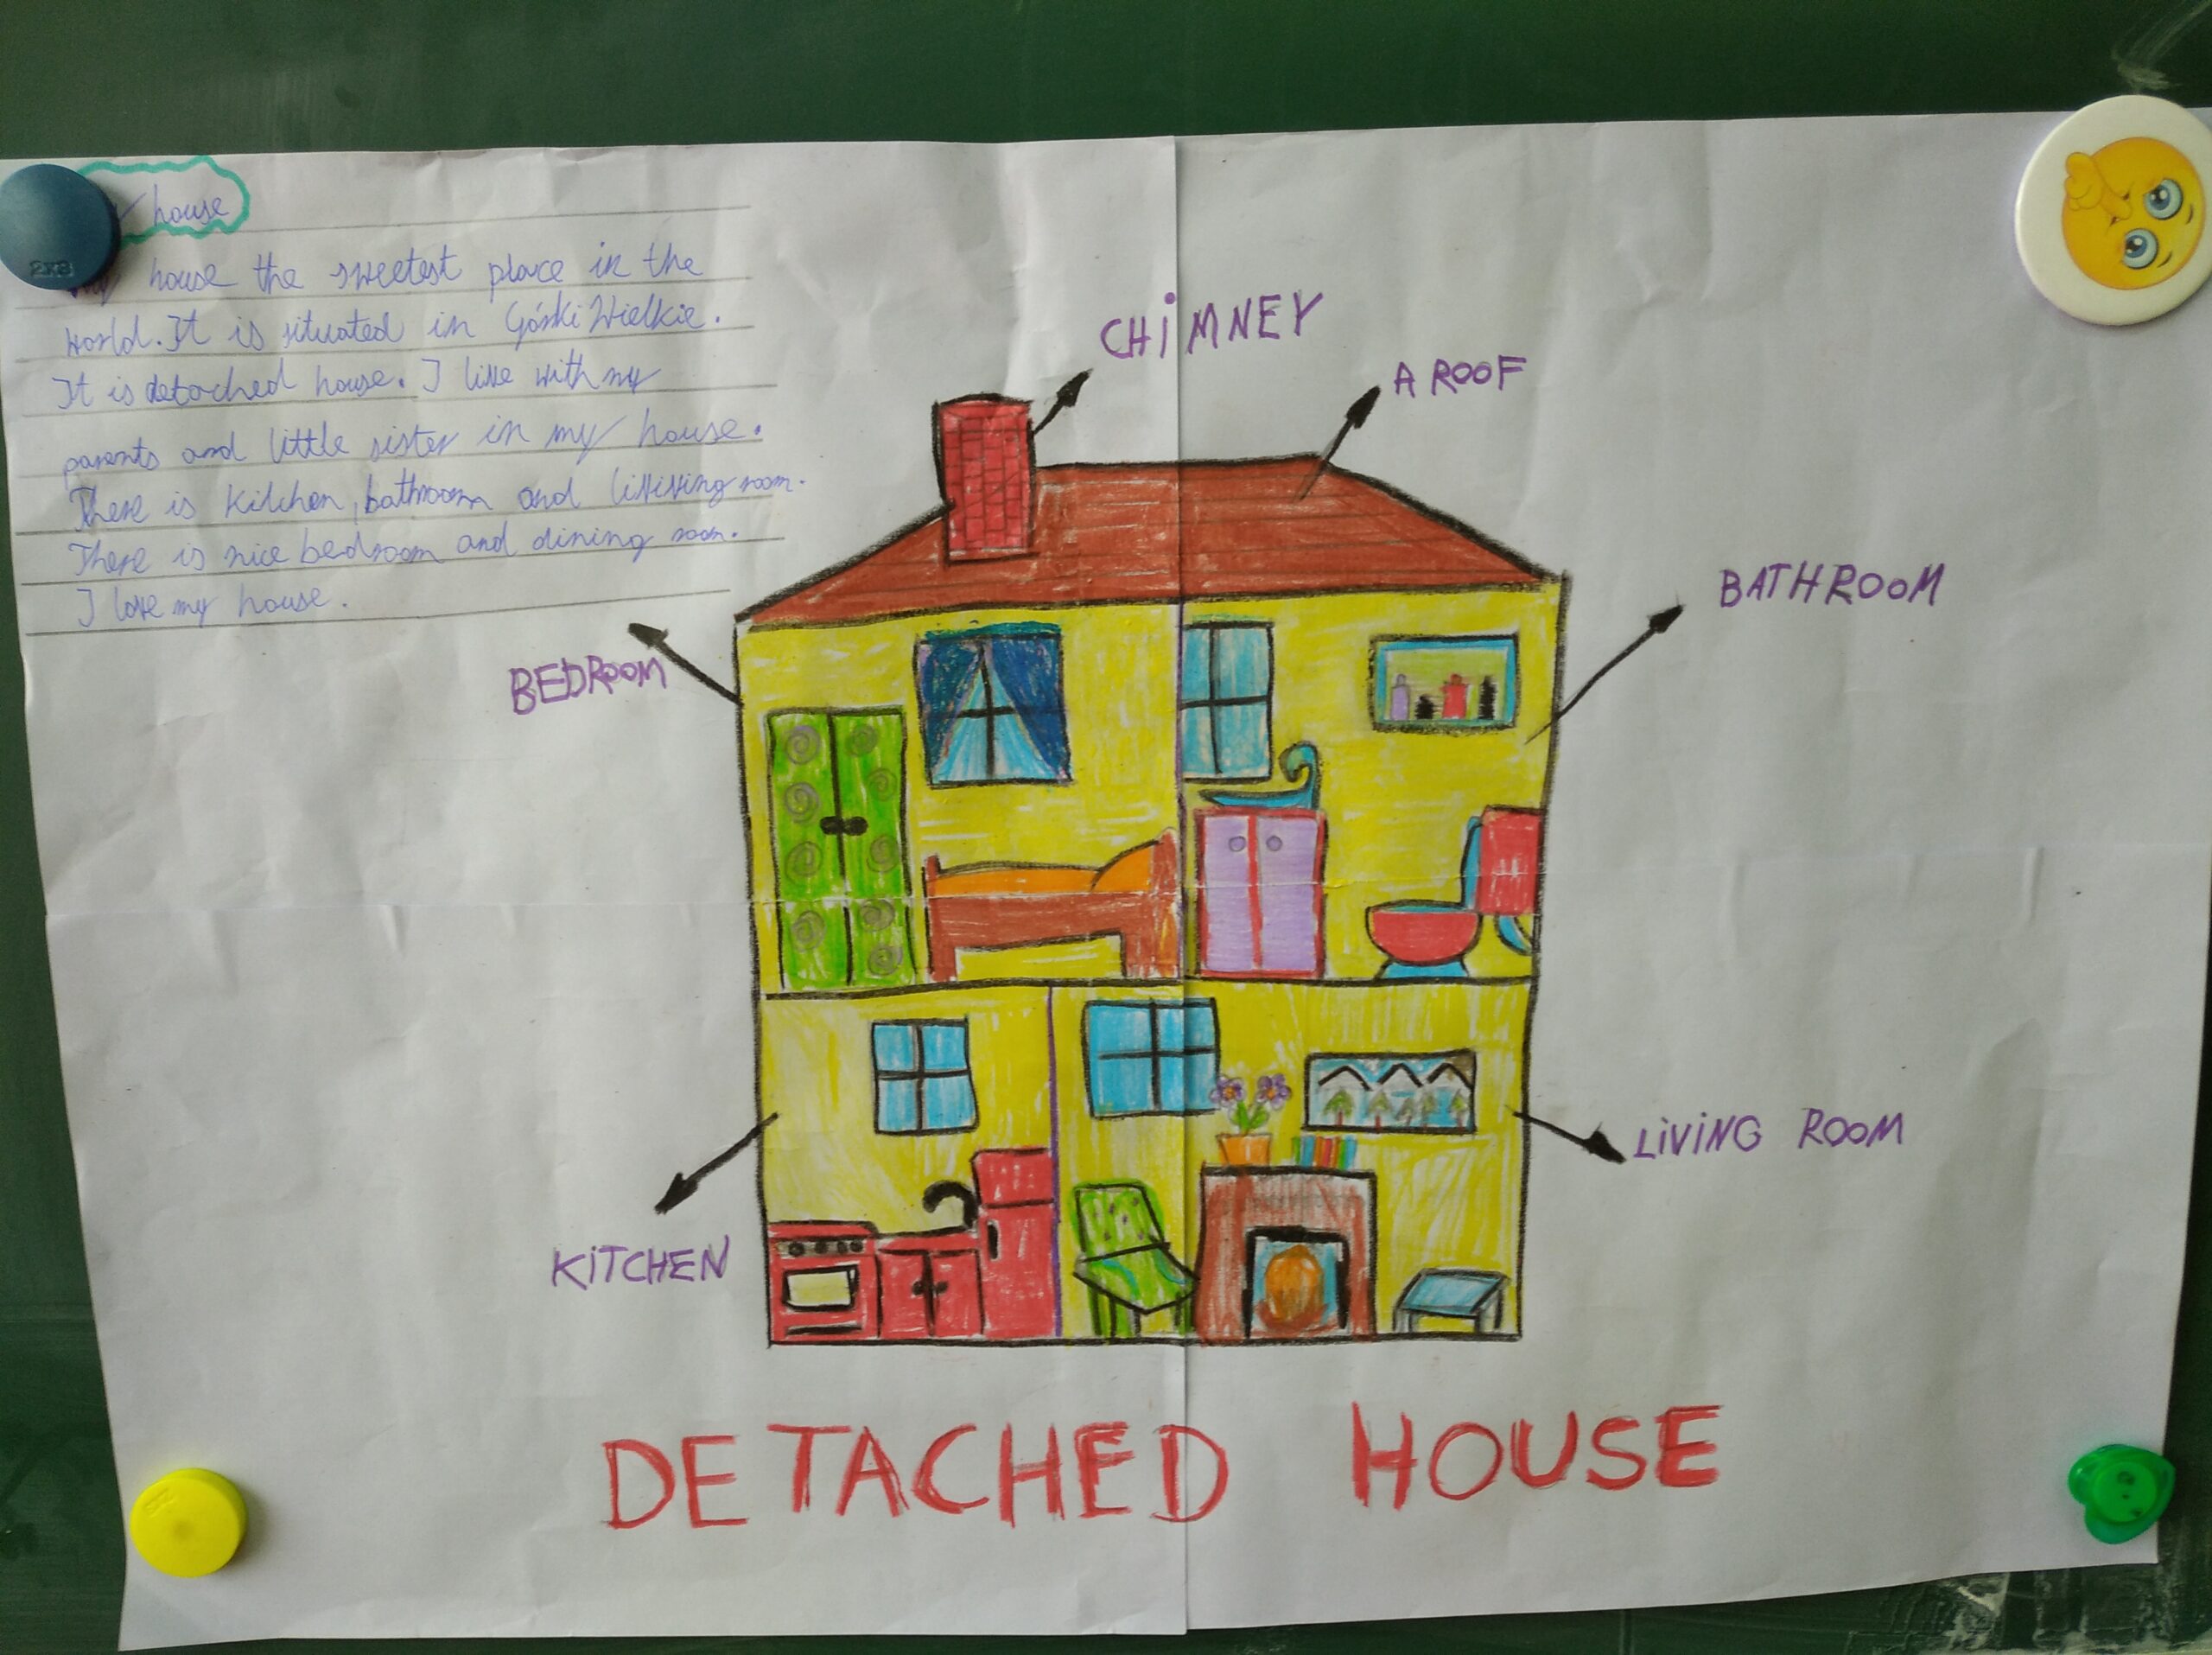 house
My house the sweetest place in the
world. It is situated in Górki Wielkie.
It is detached house. I live with my
parents and little sister in my house.
There is kitchen, bathroom and livining room.
There is nice bedroom and dining room.
I love my house.
CHiMNEY
A ROOF
BATHROOM
BEDROOM
LiViNG ROOM
KiTCHEN
DETACHED HOUSE